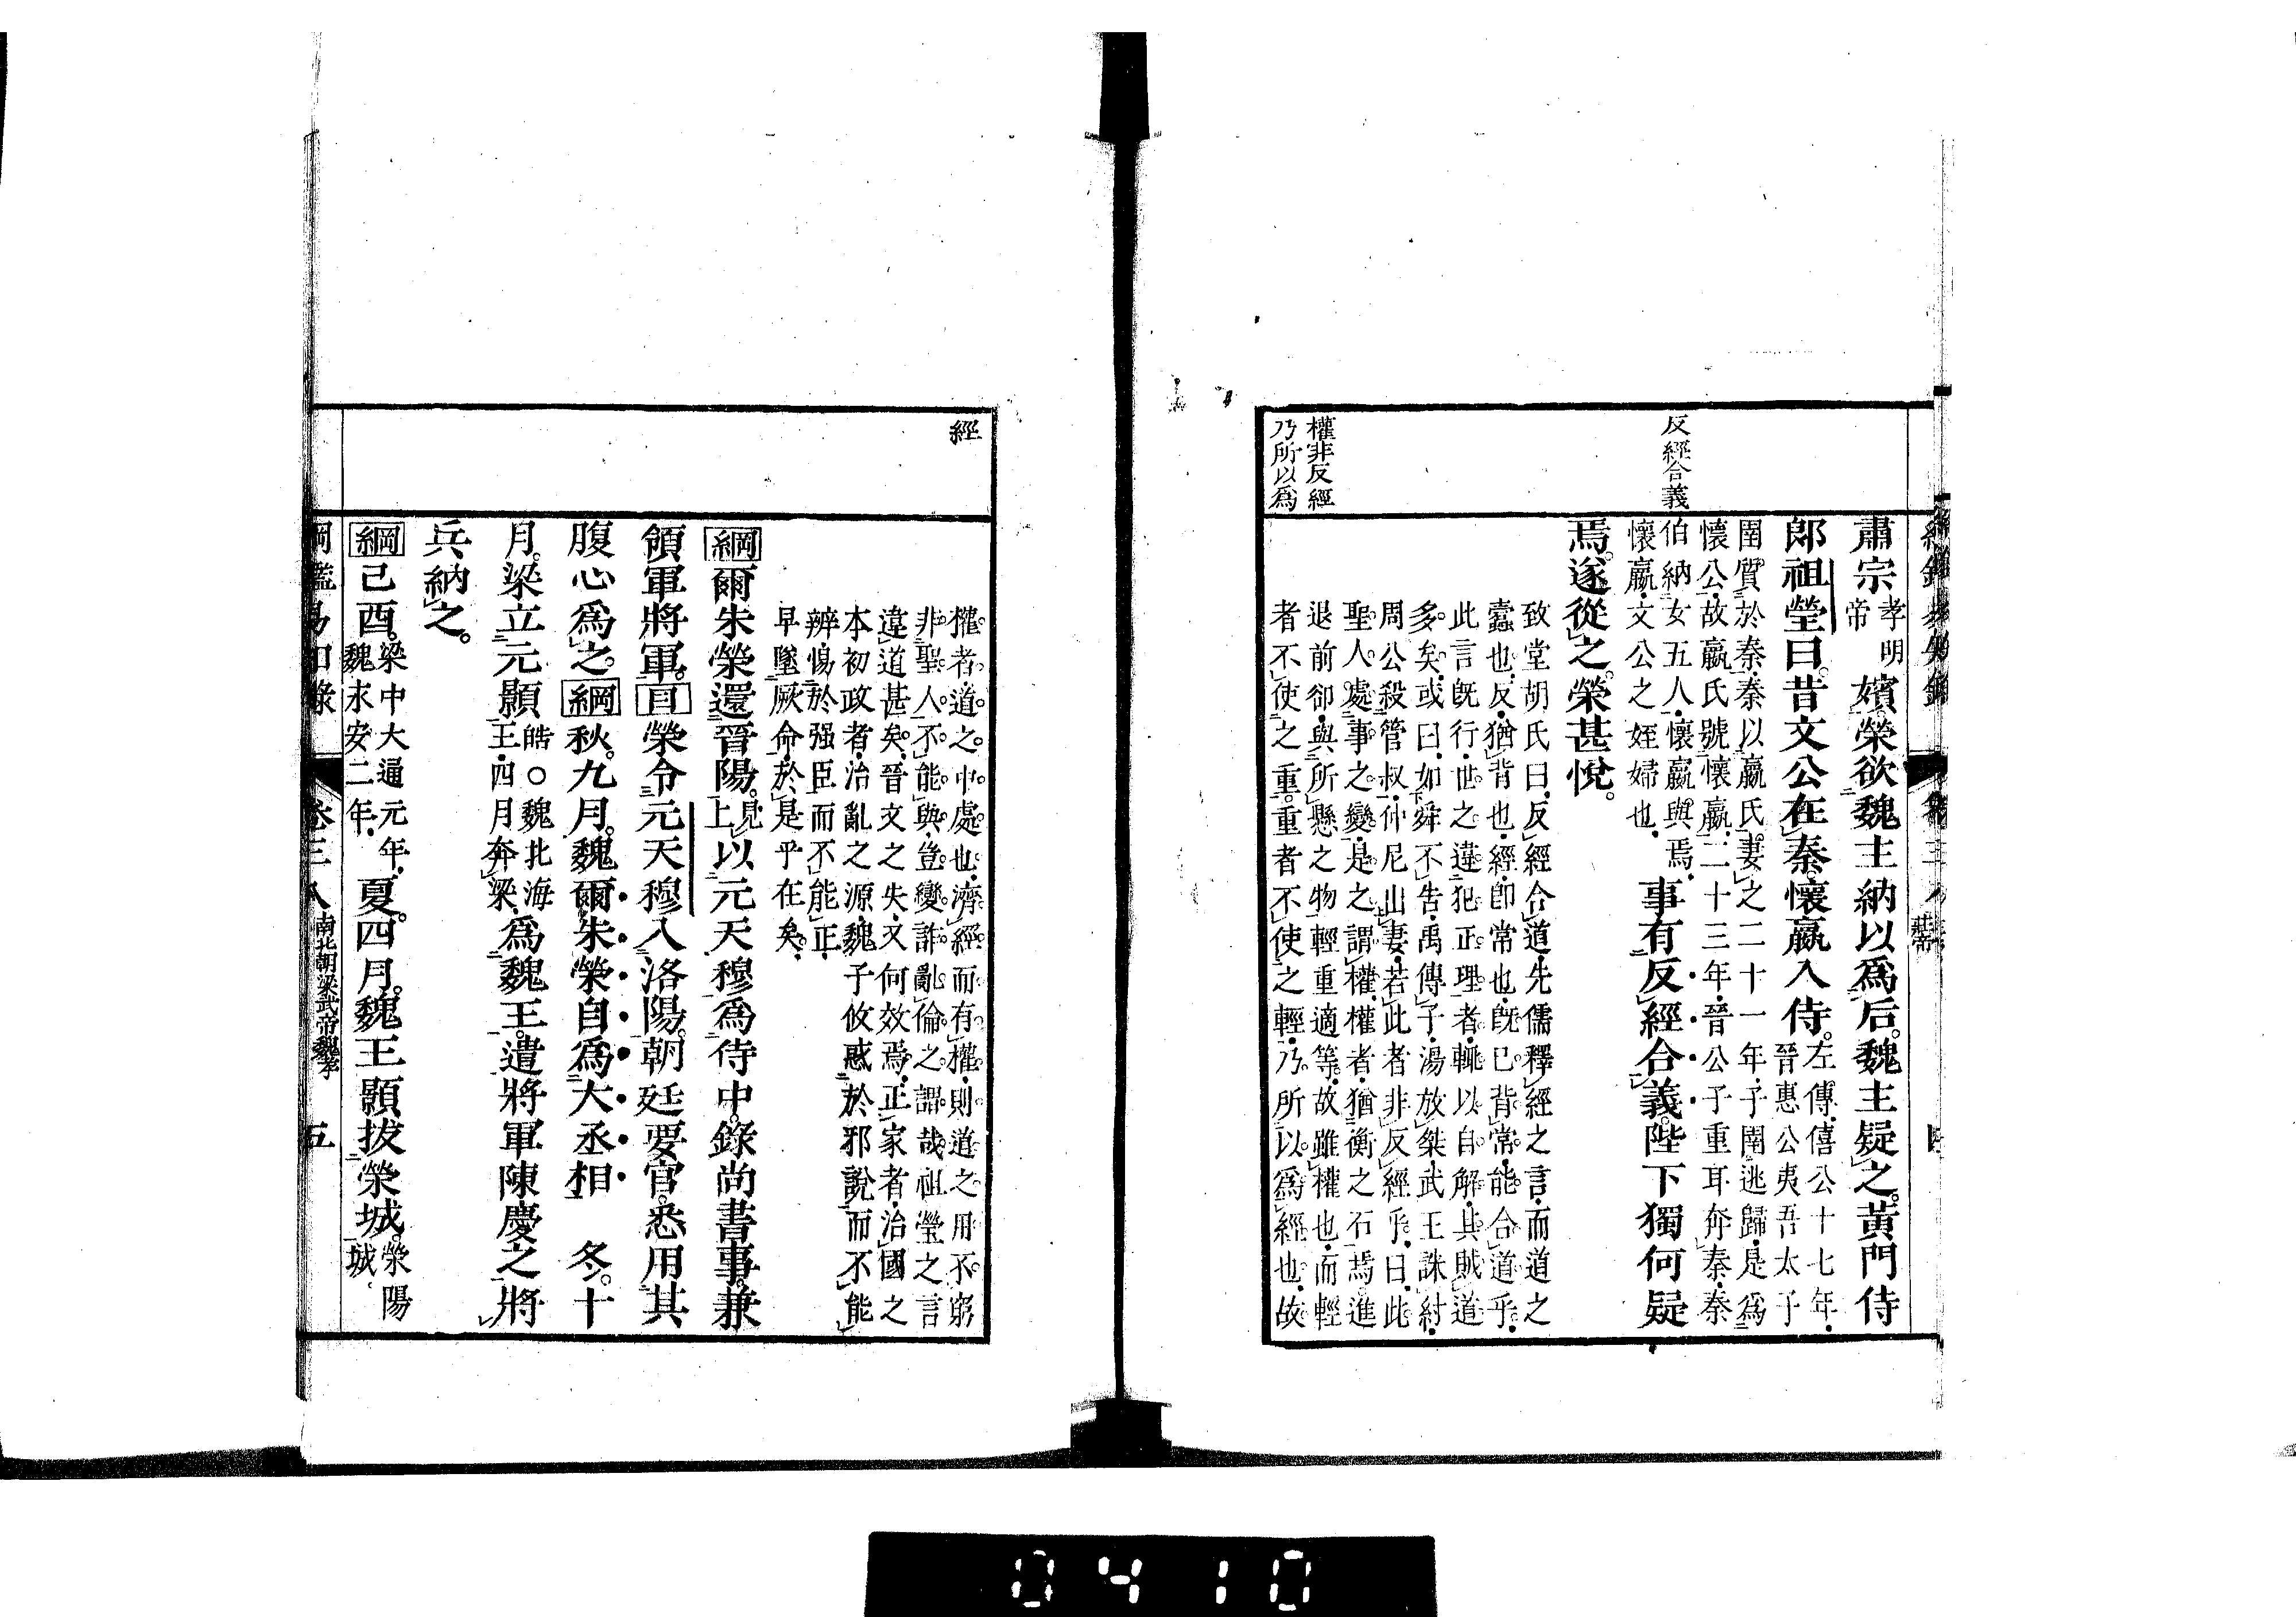 反經合義
權非反經
乃所以爲
肅宗孝明帝嬪榮欲魏主納以爲后魏主疑之黃門侍
郎祖瑩曰昔文公在秦懷嬴入侍左傳僖公十七年晉惠公夷吾太子
圉質於秦秦以嬴氏妻之二十一年子圉逃歸是爲
懷公故嬴氏號懷嬴二十三年晉公子重耳奔秦秦
伯納女五人懷嬴與焉
懷嬴文公之姪婦也
事有反經合義陛下獨何疑
焉遂從之榮甚悅
致堂胡氏曰反經合道先儒釋經之言而道之
蠹也反猶背也經卽常也旣已背常能合道乎
此言旣行世之違犯正理者輒以自解其賊道
多矣或曰如舜不告禹傳子湯放桀武王誅紂
周公殺管叔仲尼出妻若此者非反經乎曰此
聖人處事之變是之謂權權者猶衡之石焉進
退前卻與所懸之物輕重適等故雖權也而輕
者不使之重重者不使之輕乃所以爲經也故
經
權者道之中處也濟經而有權則道之用不窮
非聖人不能與豈變詐亂倫之謂哉祖瑩之言
違道甚矣晉文之失又何效焉正家者治國之
本初政者治亂之源魏子攸惑於邪說而不能
辨惕於强臣而不能正
早墜厥命於是乎在矣
綱爾朱榮還晉陽見上以元天穆爲侍中錄尚書事兼
領軍將軍目榮令元天穆入洛陽朝廷要官悉用其
腹心爲之綱秋九月魏爾朱榮自爲大丞相 冬十
月梁立元顥皓〇魏北海王四月奔梁爲魏王遣將軍陳慶之將
兵納之
綱己酉梁中大通元年魏永安二年夏四月魏王顥拔榮城滎陽城
卷三八 南北朝梁武帝魏孝 五